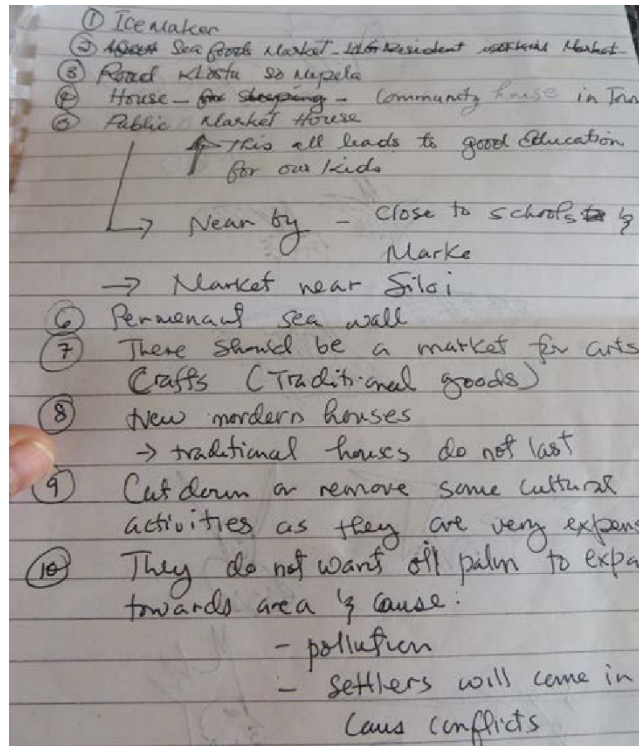 ① Ice Maker
② Sea foods Market - Resident Market
③ Road Klostu so Nupela
④ House - for sleeping - Community house in Tow
⑤ Public Market House
This all leads to good Education
for our kids
→ Near by - close to schools &
Marke
→ Market near Siloi
⑥ Permenant sea wall
⑦ There should be a market for arts
Crafts (Traditional goods)
⑧ New mordern houses
→ traditional houses do not last
⑨ Cut down or remove some cultural
activities as they are very expens
⑩ They do not want oil palm to expa
towards area & cause:
- pollution
- settlers will come in
Caus conflicts